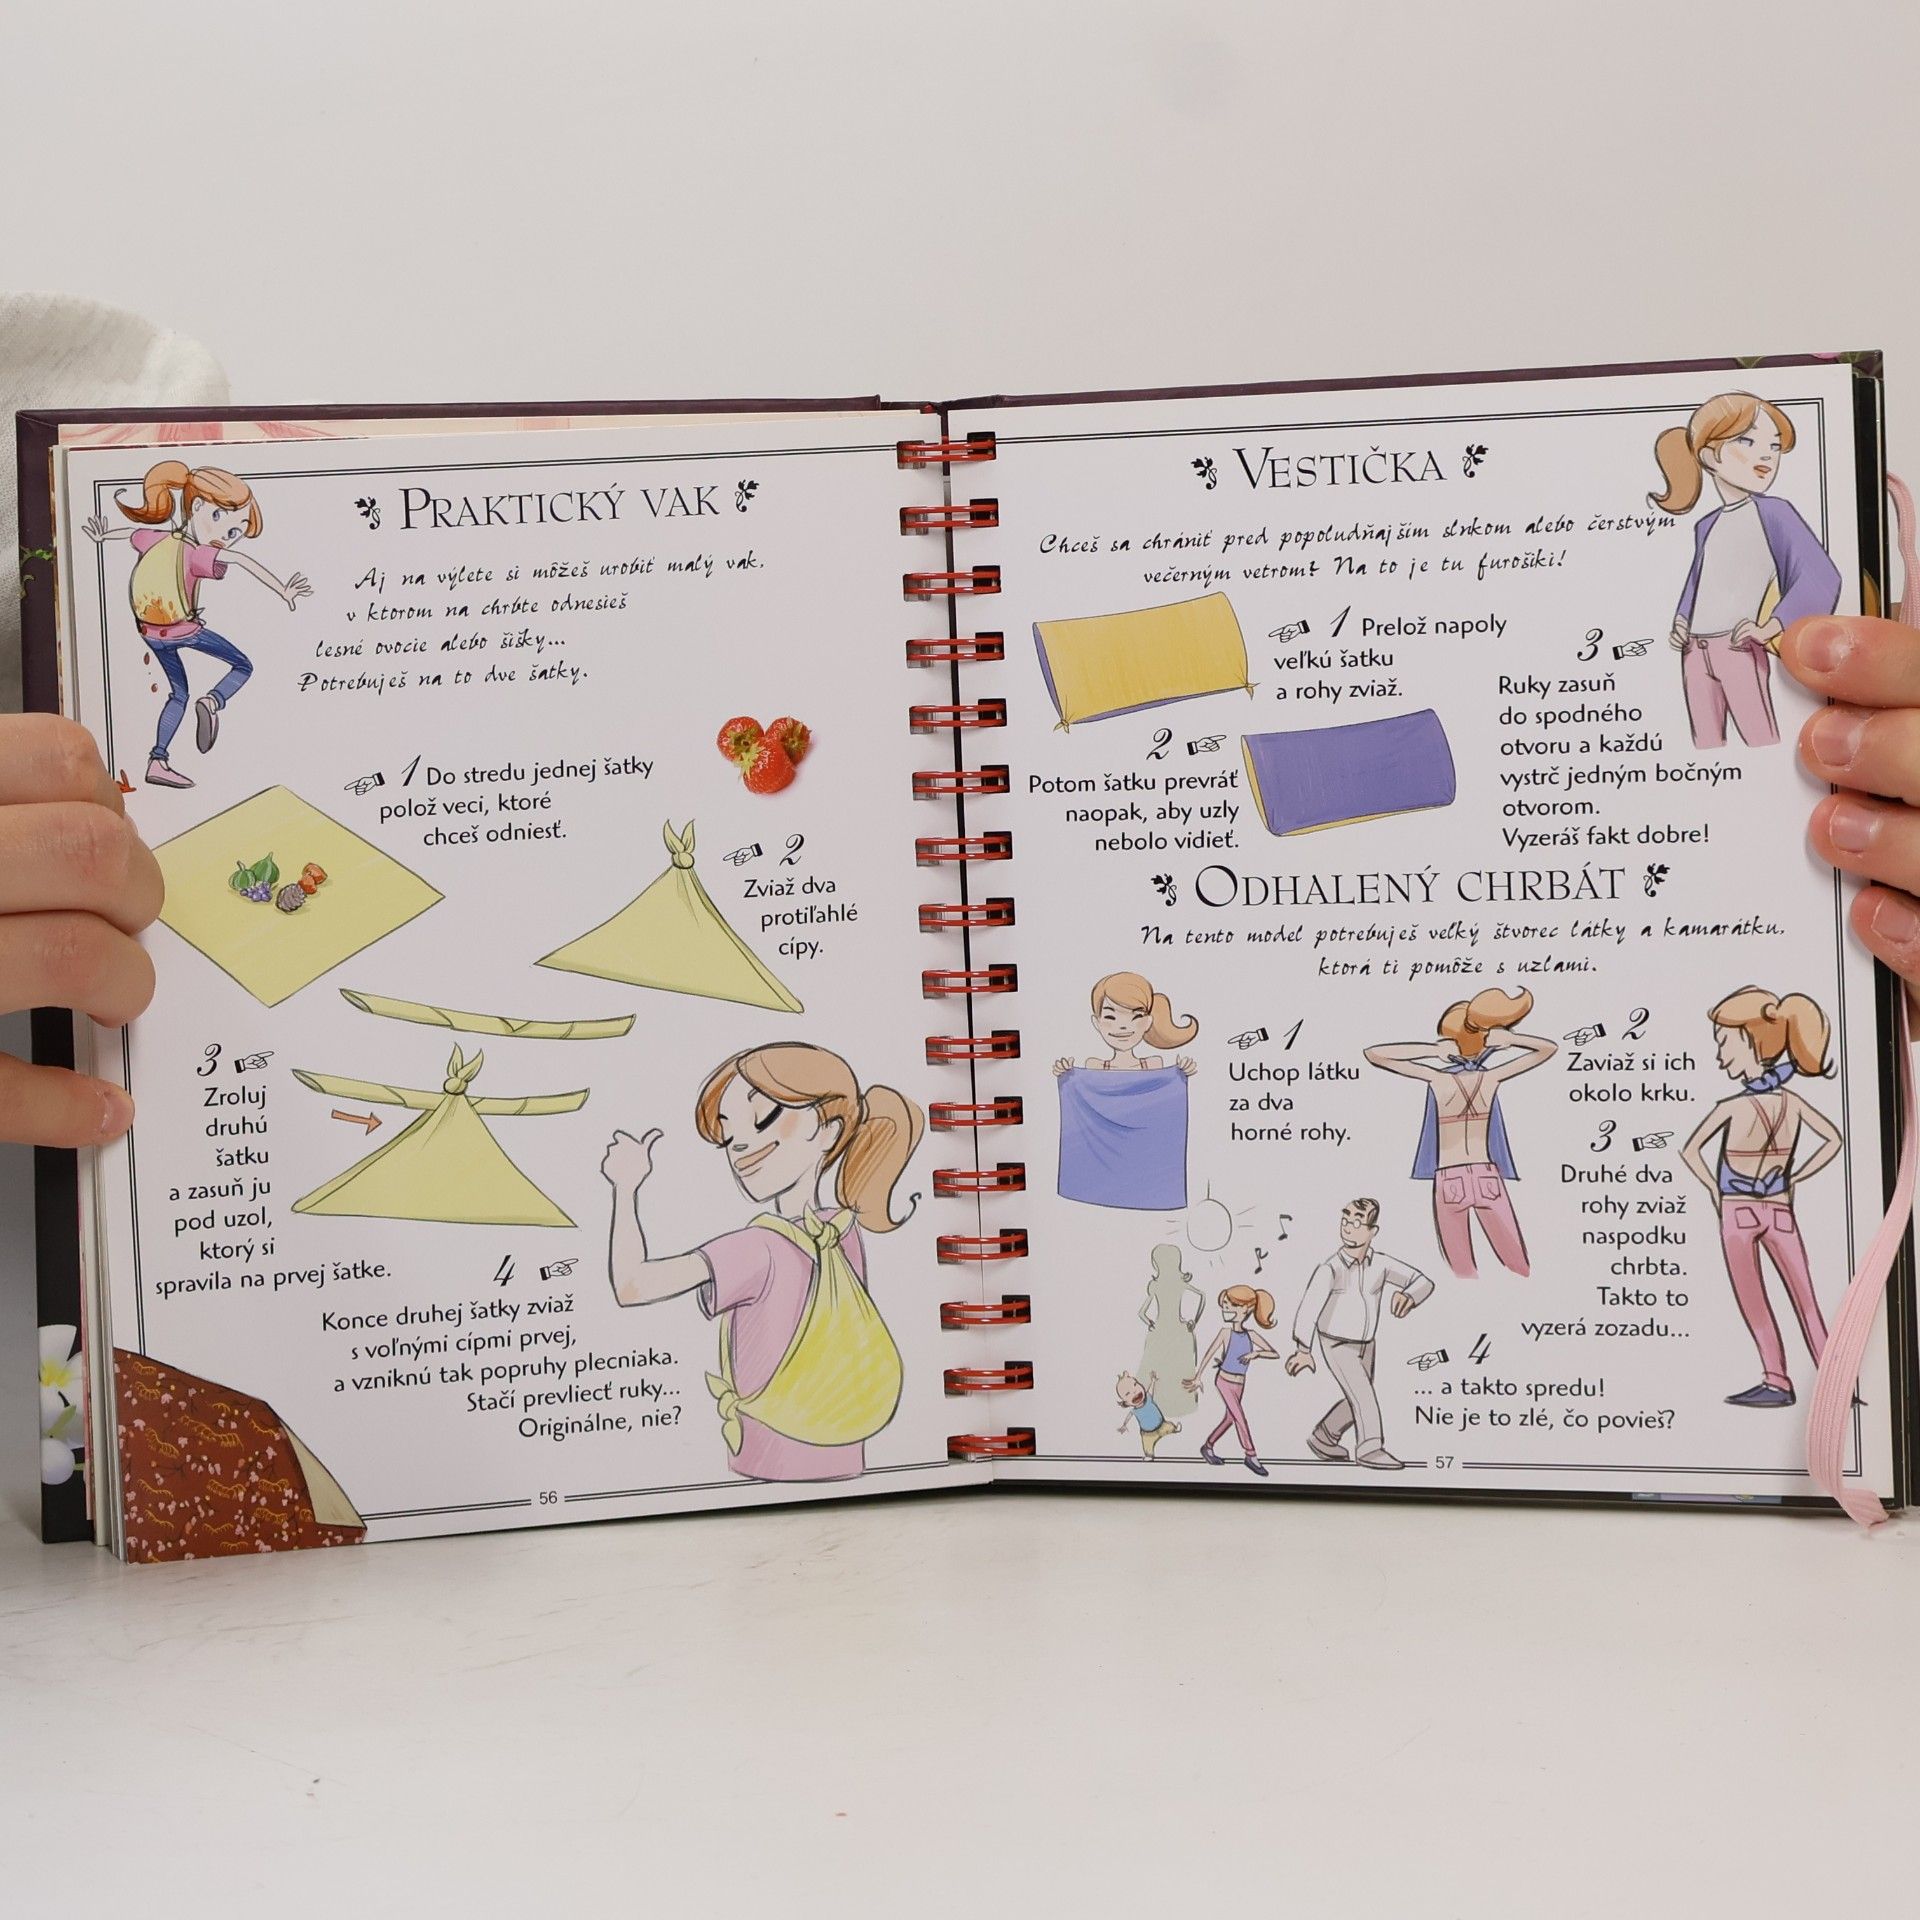 PRAKTICKÝ VAK
Aj na výlete si môžeš urobiť malý vak,
v ktorom na chrbte odnesieš
lesné ovocie alebo šišky...
Potrebuješ na to dve šatky.
1 Do stredu jednej šatky
polož veci, ktoré
chceš odniesť.
2
Zviaž dva
protiľahlé
cípy.
3
Zroluj
druhú
šatku
a zasuň ju
pod uzol,
ktorý si
spravila na prvej šatke.
4
Konce druhej šatky zviaž
s voľnými cípmi prvej,
a vzniknú tak popruhy plecniaka.
Stačí prevliecť ruky...
Originálne, nie?
56
VESTIČKA
Chceš sa chrániť pred popoludňajším slnkom alebo čerstvým
večerným vetrom? Na to je tu furošiki!
1 Prelož napoly
veľkú šatku
a rohy zviaž.
2
Potom šatku prevráť
naopak, aby uzly
nebolo vidieť.
3
Ruky zasuň
do spodného
otvoru a každú
vystrč jedným bočným
otvorom.
Vyzeráš fakt dobre!
ODHALENÝ CHRBÁT
Na tento model potrebuješ veľký štvorec látky a kamarátku,
ktorá ti pomôže s uzlami.
1
Uchop látku
za dva
horné rohy.
2
Zaviaž si ich
okolo krku.
3
Druhé dva
rohy zviaž
naspodku
chrbta.
Takto to
vyzerá zozadu...
4
... a takto spredu!
Nie je to zlé, čo povieš?
57